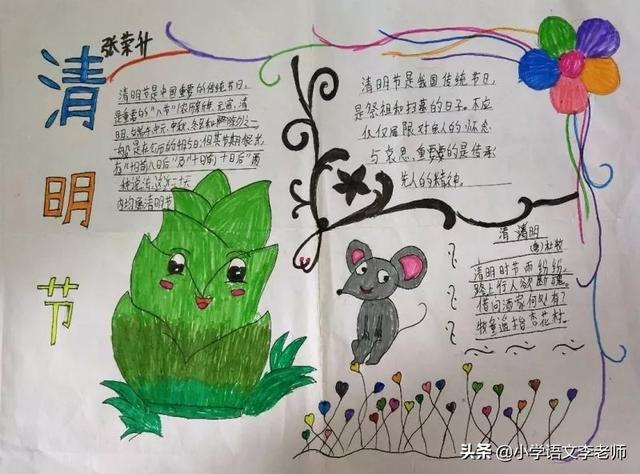 清
明
节
张荣升
清明节是中国重要的传统节日,
是重要的"八节"(上元、清
一般是在公历的4月5日,但其节期很长
有"十日前八日后"及"十日前十日后"两
种说法,这近二十天
内均属清明节
清明节是我国传统节日,
是祭祖和扫墓的日子。不应
仅仅局限对先人的怀念
与哀思,重要的是传承
先人的精神。
清明
杜牧
清明时节雨纷纷,
路上行人欲断魂。
借问酒家何处有?
牧童遥指杏花村。
头条 @小学语文李老师